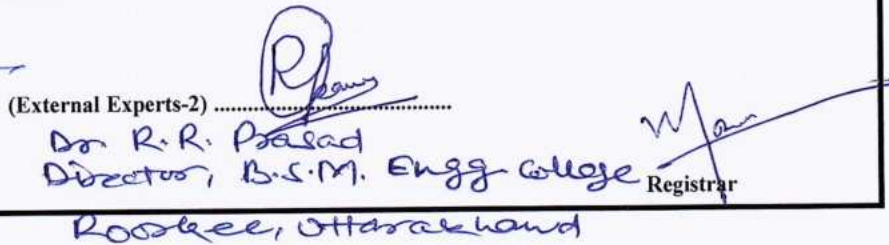 (External Experts-2) ....................................
Dr. R. R. Prasad
Director, B.S.M. Engg. College
Registrar
Roorkee, Uttarakhand